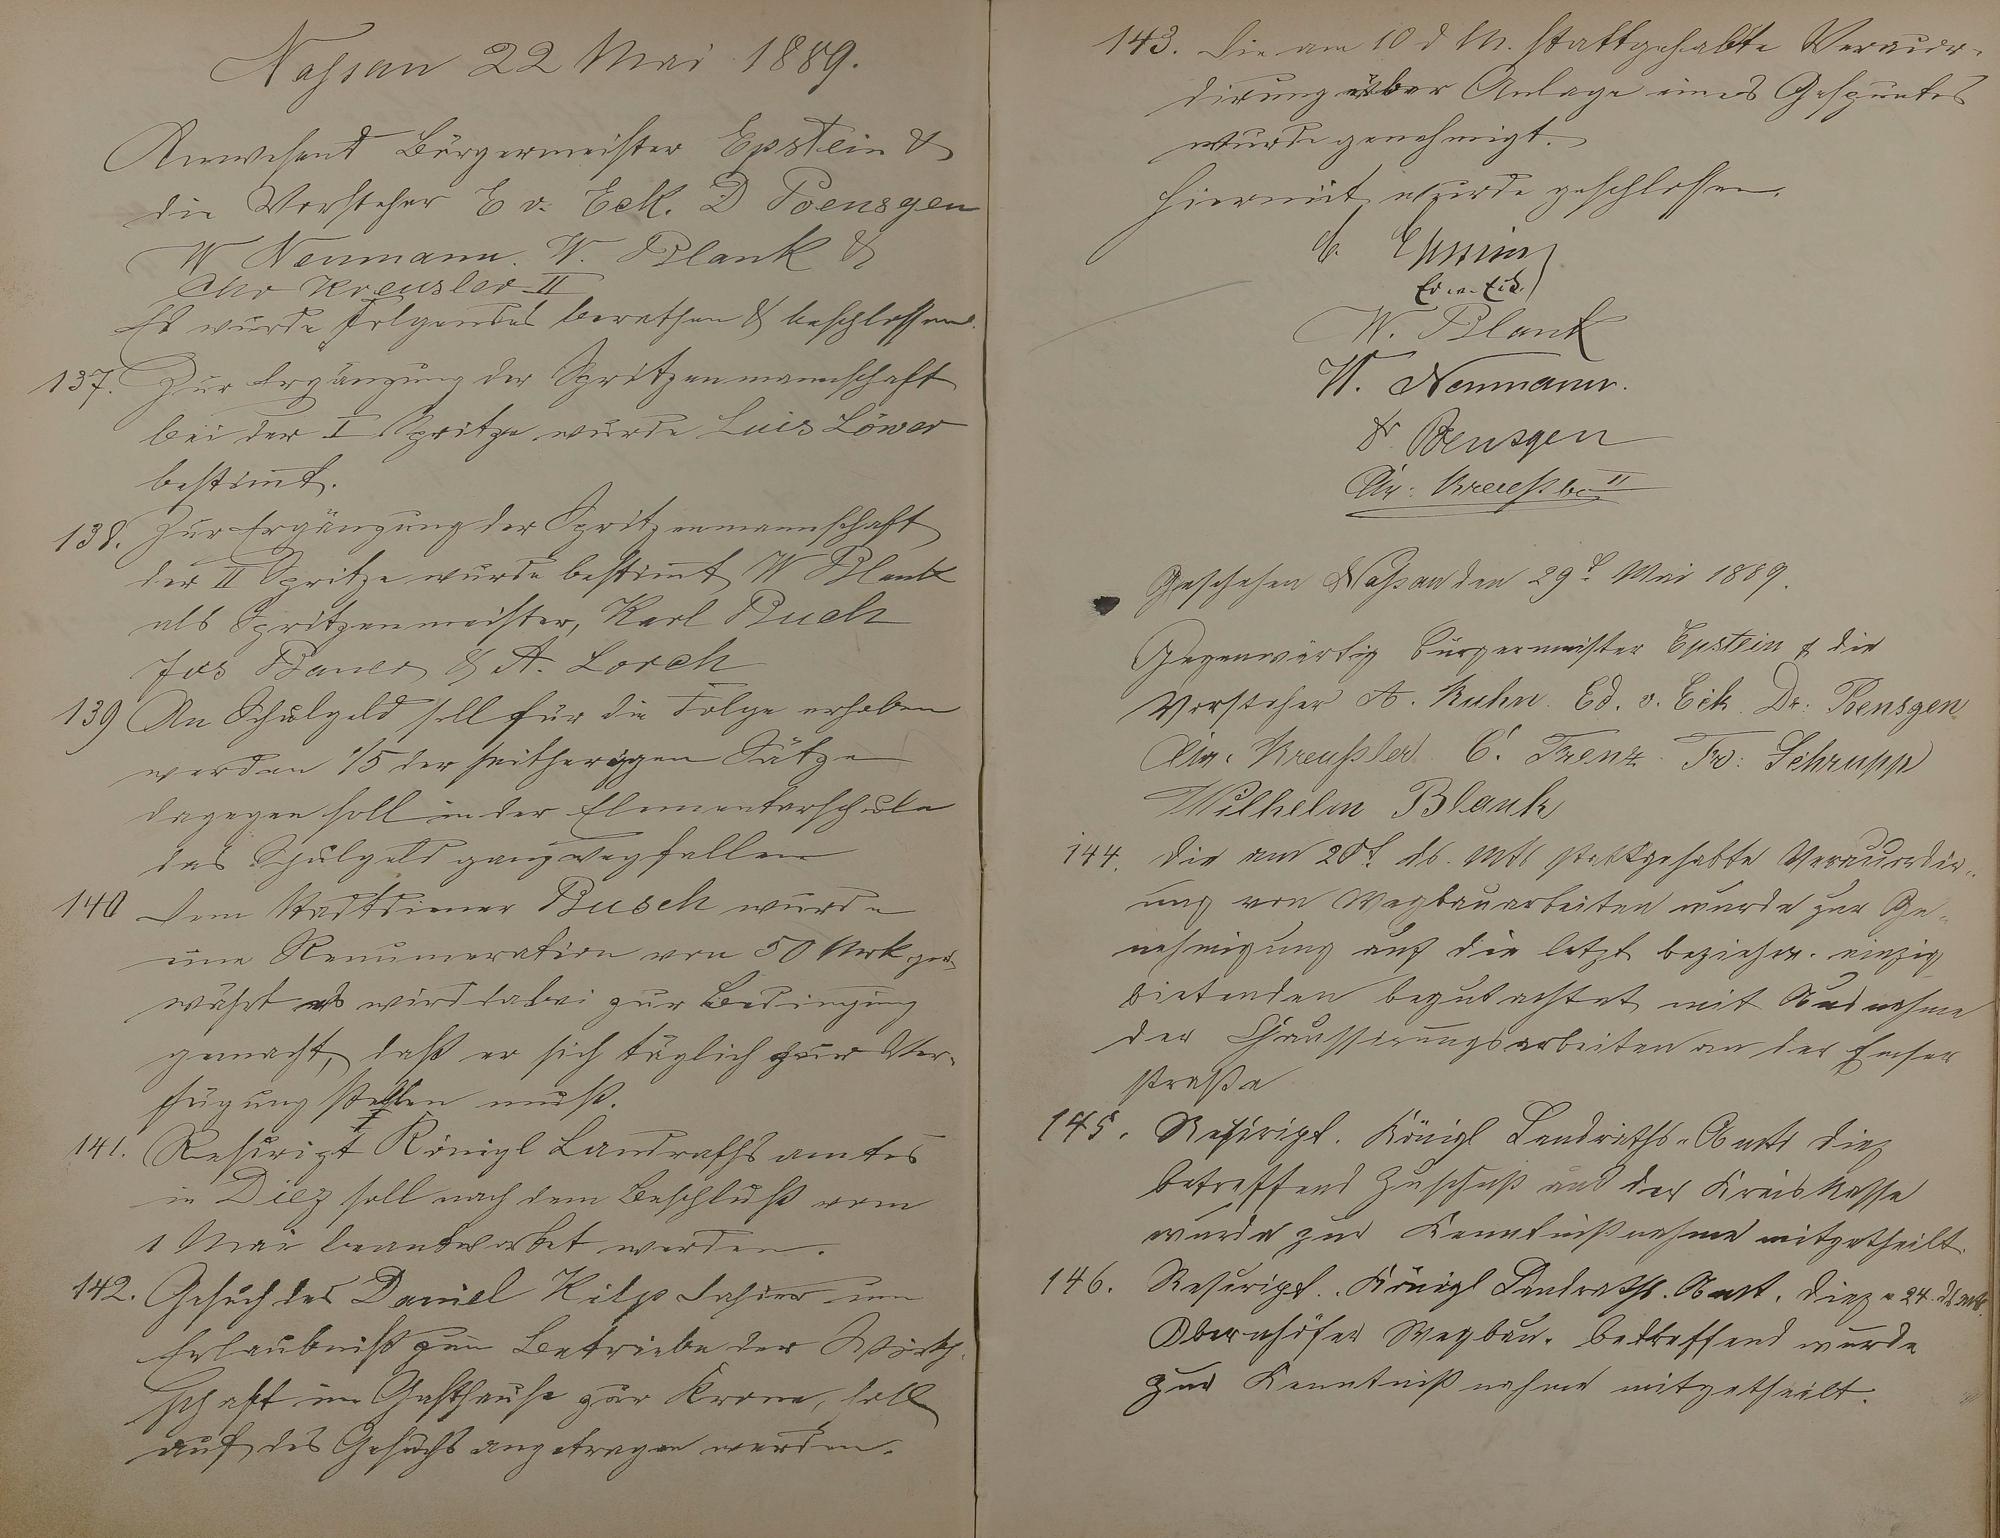 Nassau 22 Mai 1889.
Anwesend Bürgermeister Epstein &
die Vorsteher E v. Eck. D Poensgen
W Neumann. W. Blank &
Chr Kreusler II
Es wurde folgendes berathen & beschlossen.
137. Zur Ergänzung der Spritzenmannschaft
bei der I Spritze wurde Luis Löwer
bestimt.
138. Zur Ergänzung der Spritzenmannschaft
der II Spritze wurde bestimt W Blank
als Spritzenmeister, Karl Buch
Jos Bauer & A. Lorch
139 An Schulgeld soll für die Folge erhoben
werden 1/5 der seitherigen Sätze
dagegen soll in der Elementarschule
das Schulgeld ganz wegfallen
140 Dem Stadtdiener Busch wurde
eine Renumeration von 50 Mrk ge-
währt es wird dabei zur Bedingung
gemacht, daß er sich täglich zur Ver-
fügung stellen muß.
141. Rescript Königl Landraths amtes
in Diez soll nach dem Beschluß vom
1 Mai beantwortet werden.
142. Gesuch des Daniel Kilp dahier um
Erlaubniß zum Betriebe der Wirth-
schaft im Gasthause zur Krone, soll
auf des Gesuchs angetragen werden.
143. Die am 10 d M. stattgehabte Veraccor-
dirung über Anlage eines
wurde genehmigt.
Hiermit wurde geschlossen.
Epstein
Ed. v. Eck.
W. Blank
W. Neumann.
Dr Poensgen
Chr: Kreußler II
Geschehen Nassau den 29t Mai 1889.
Gegenwärtig Bürgermeister Epstein & die
Vorsteher A. Kuhn. Ed. v. Eck. Dr: Poensgen
Chr. Kreußler C. Trenz. Fr: Schrupp
Wilhelm Blank
144. Die am 28t. ds. Mts stattgehabte Veraccordir-
ung von Wegbauarbeiten wurde zur Ge-
nehmigung auf die letzt beziehw. einzig
bietenden begutachtet mit Ausnahme
der Chaussirungsarbeiten an der Emser
straße
145. Rescript. Königl Landraths-Amts Diez
betreffend Zuschuß aus der Kreiskasse
wurde zur Kenntnißnahme mitgetheilt.
146. Rescript. Königl Landraths. Amt. Diez v 24. ds Mts.
Obernhöfer Wegbau. betreffend wurde
zur Kenntniß nahme mitgetheilt.